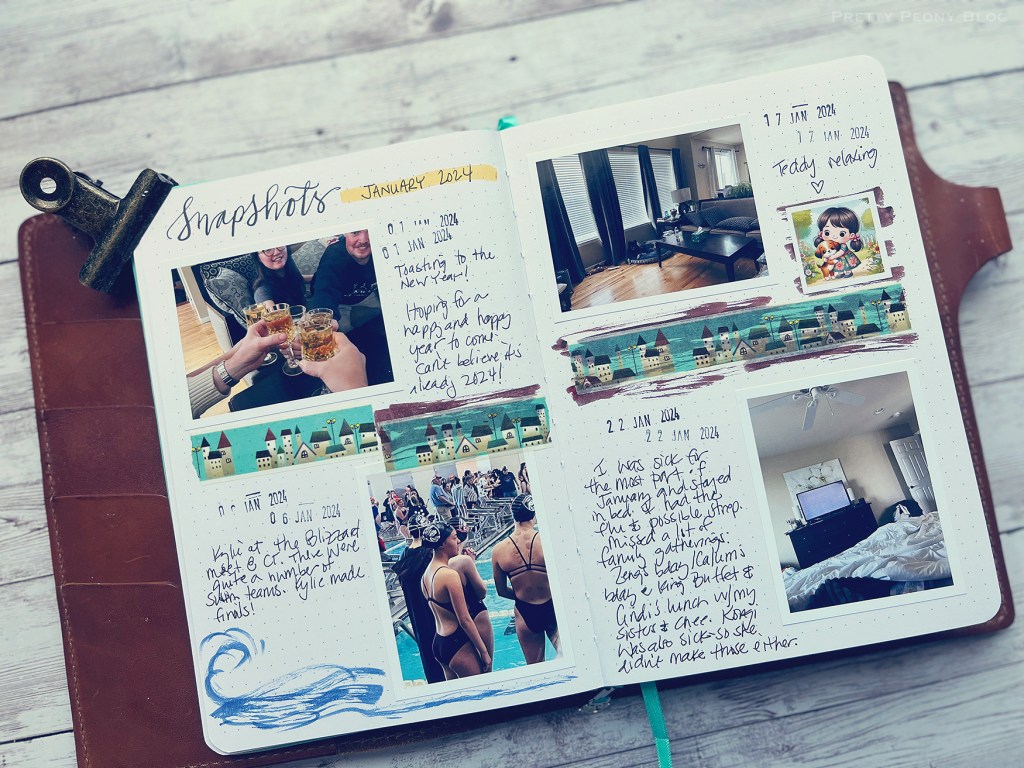 PRETTY PEONY BLOG
Snapshots
JANUARY 2024
01 JAN 2024
01 JAN 2024
Toasting to the
New Year!
Hoping for a
happy and happy
year to come.
Can't believe it's
already 2024!
06 JAN 2024
06 JAN 2024
Kylie at the Blizzard
meet @ CT. There were
quite a number of
swim teams. Kylie made
finals!
17 JAN 2024
17 JAN 2024
Teddy relaxing
22 JAN 2024
22 JAN 2024
I was sick for
the most part of
January and stayed
in bed. I had the
flu & possible strep.
Missed a lot of
family gatherings.
Zeng's bday/Calum's
bday @ King Buffet &
Cindi's lunch w/my
sisters & Chee.
was also sick-so she
didn't make those either.